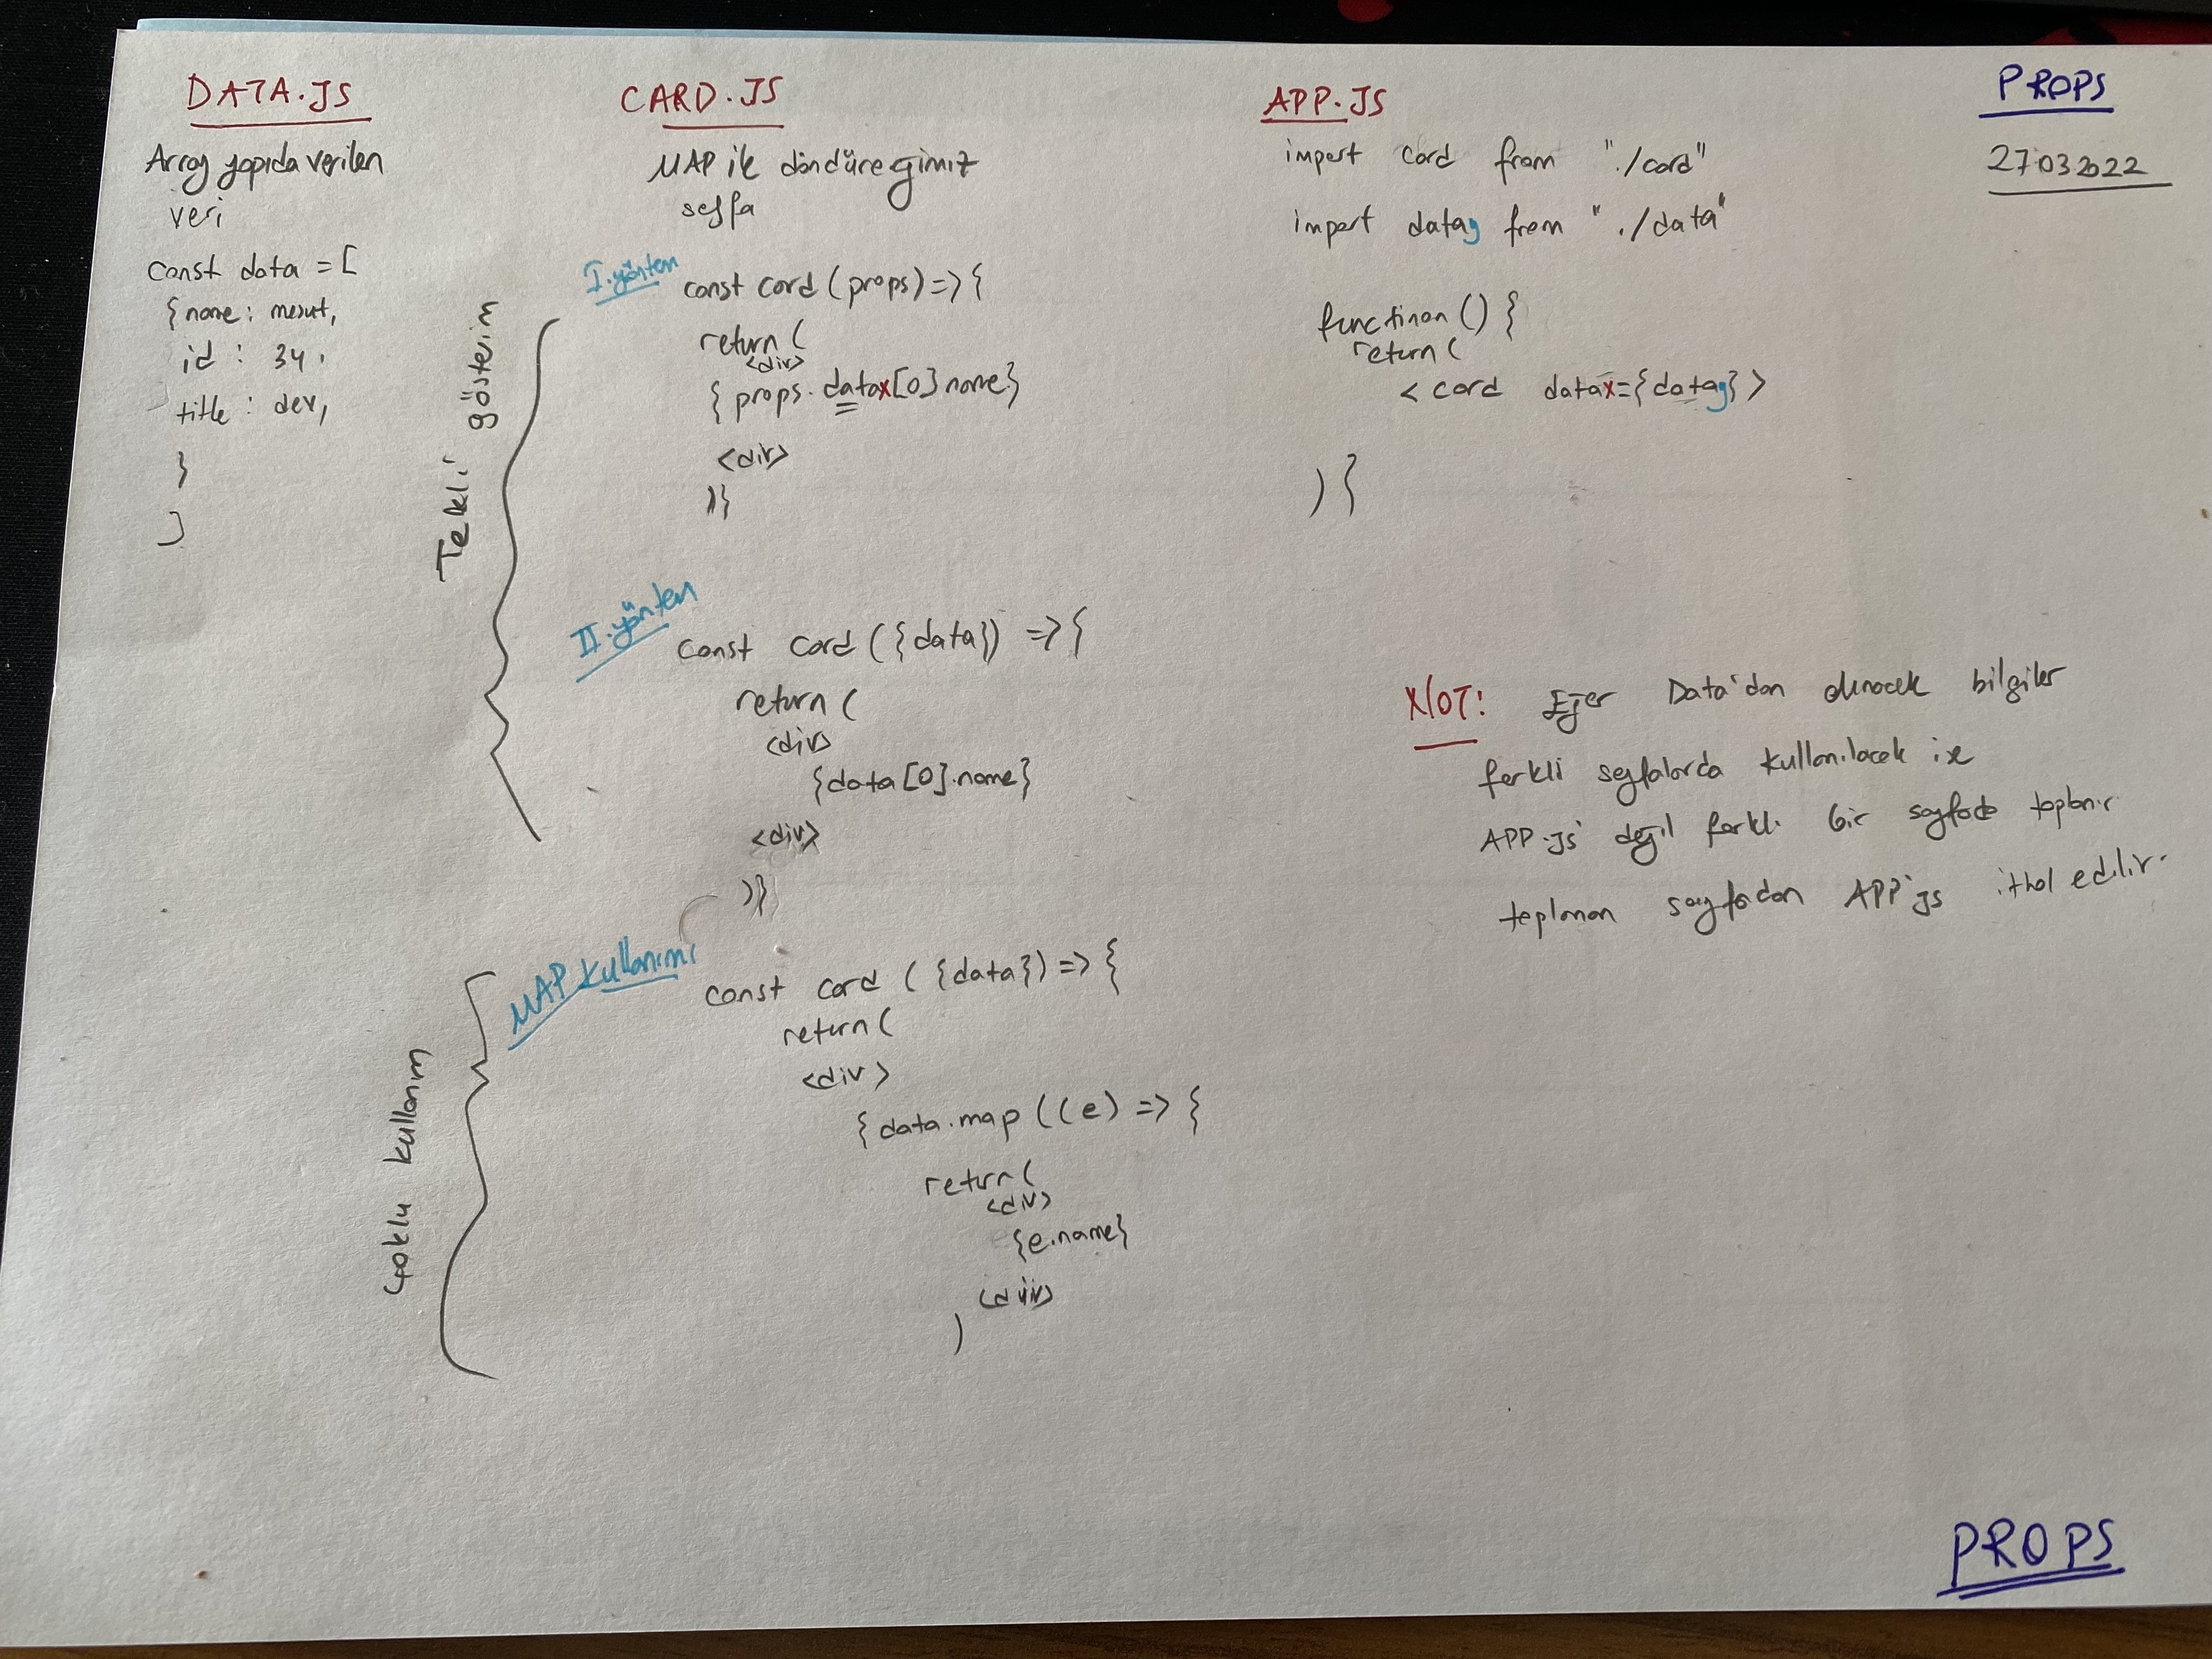 DATA.JS
Array yapıda verilen
veri
const data = [
{name: mesut,
id : 34,
title : dev,
}
]
CARD.JS
MAP ile döndüreceğimiz
sayfa
Tekli gösterim
I.yöntem
const card (props) => {
return (
<div>
{props.datax[0]name}
<div>
)}
II.yöntem
const card ({data}) => {
return (
<div>
{data[0].name}
<div>
)}
Çoklu kullanım
MAP kullanımı
const card ({data}) => {
return (
<div>
{data.map ((e) => {
return (
<div>
{e.name}
<div>
)
APP.JS
import card from "./card"
import datag from "./data"
functinon () {
return (
< card datax={datag} >
) {
NOT: Eğer Data'dan alınacak bilgiler
farkli sayfalarda kullanılacak ise
APP.JS değil farklı bir sayfada toplanır
toplanan sayfadan APP'JS ithal edilir.
PROPS
27032022
PROPS